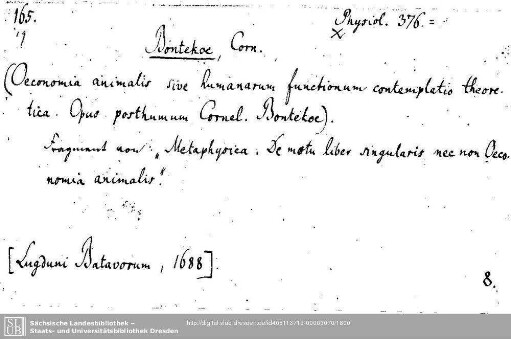 165.
Physiol. 376. =
19
x
Bontekoe, Corn.
(Oeconomia animalis sive humanarum functionum contemplatio theore-
tica. Opus posthumum Cornel. Bontekoe).
Fragment von: „Metaphysica. De motu liber singularis nec non Oeco-
nomia animalis."
[Lugduni Batavorum, 1688].
8.
SLUB
Sächsische Landesbibliothek –
Staats- und Universitätsbibliothek Dresden